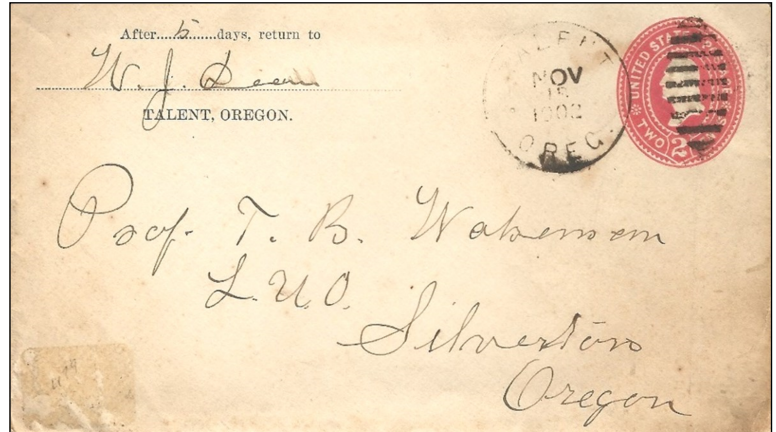 After....5.......days, return to
W. J. Dean
TALENT, OREGON.
TALENT
NOV
15
1902
OREG.
UNITED STATES
TWO 2
Prof. T. B. Wakeman
L.U.O.
Silverton
Oregon